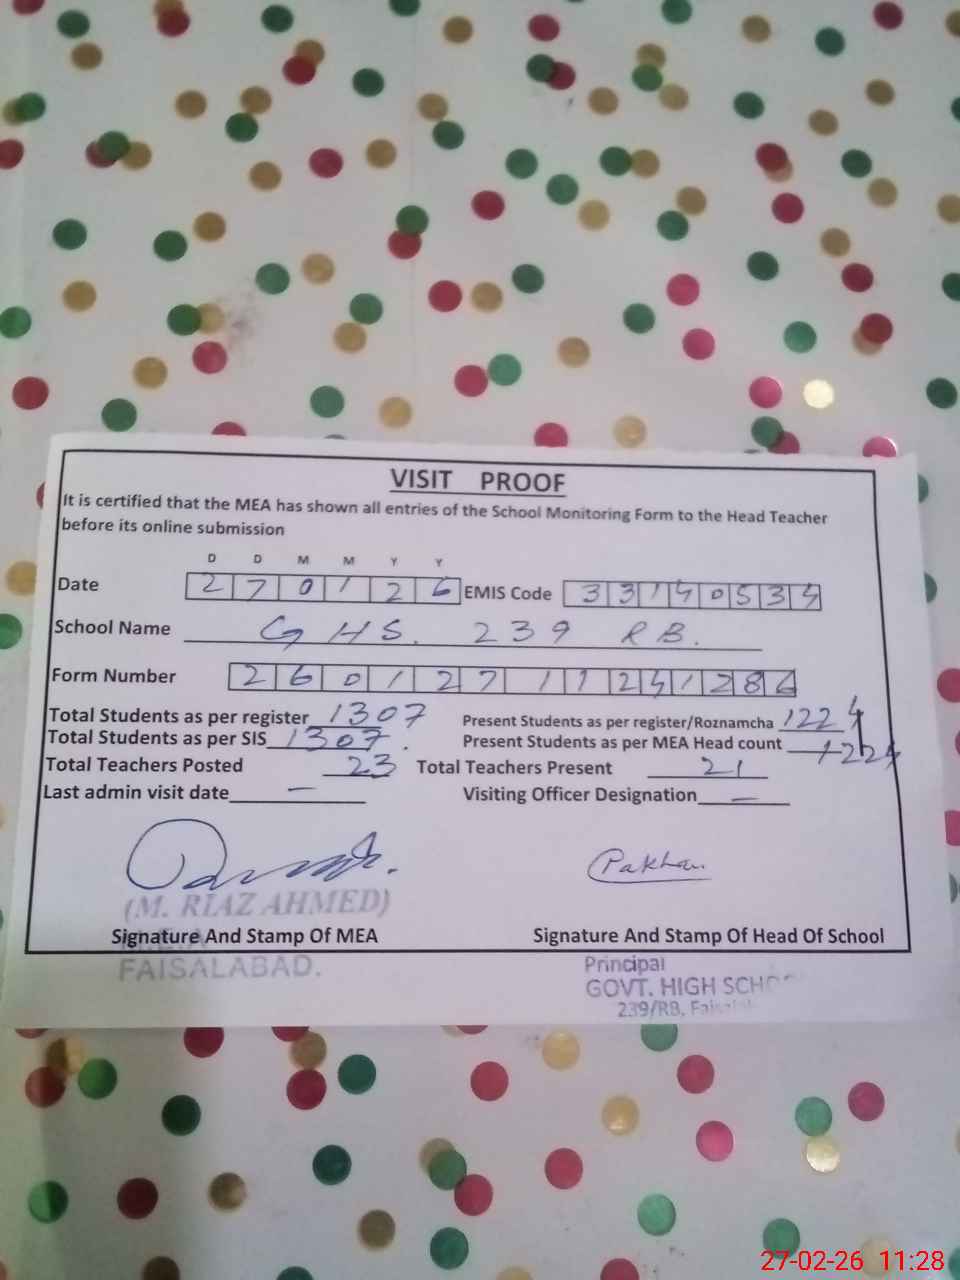 VISIT PROOF
It is certified that the MEA has shown all entries of the School Monitoring Form to the Head Teacher
before its online submission
D D M M Y Y
Date 2 7 0 1 2 6 EMIS Code 3 3 1 4 0 5 3 4
School Name G H S. 239 R B.
Form Number 2 6 0 1 2 7 1 1 2 4 1 2 8 6
Total Students as per register 1307 Present Students as per register/Roznamcha 1224
Total Students as per SIS 1307. Present Students as per MEA Head count 1224
Total Teachers Posted 23 Total Teachers Present 21
Last admin visit date — Visiting Officer Designation —
(M. RIAZ AHMED)
M.E.A
Signature And Stamp Of MEA Signature And Stamp Of Head Of School
FAISALABAD. Principal
GOVT. HIGH
239/RB,
27-02-26 11:28